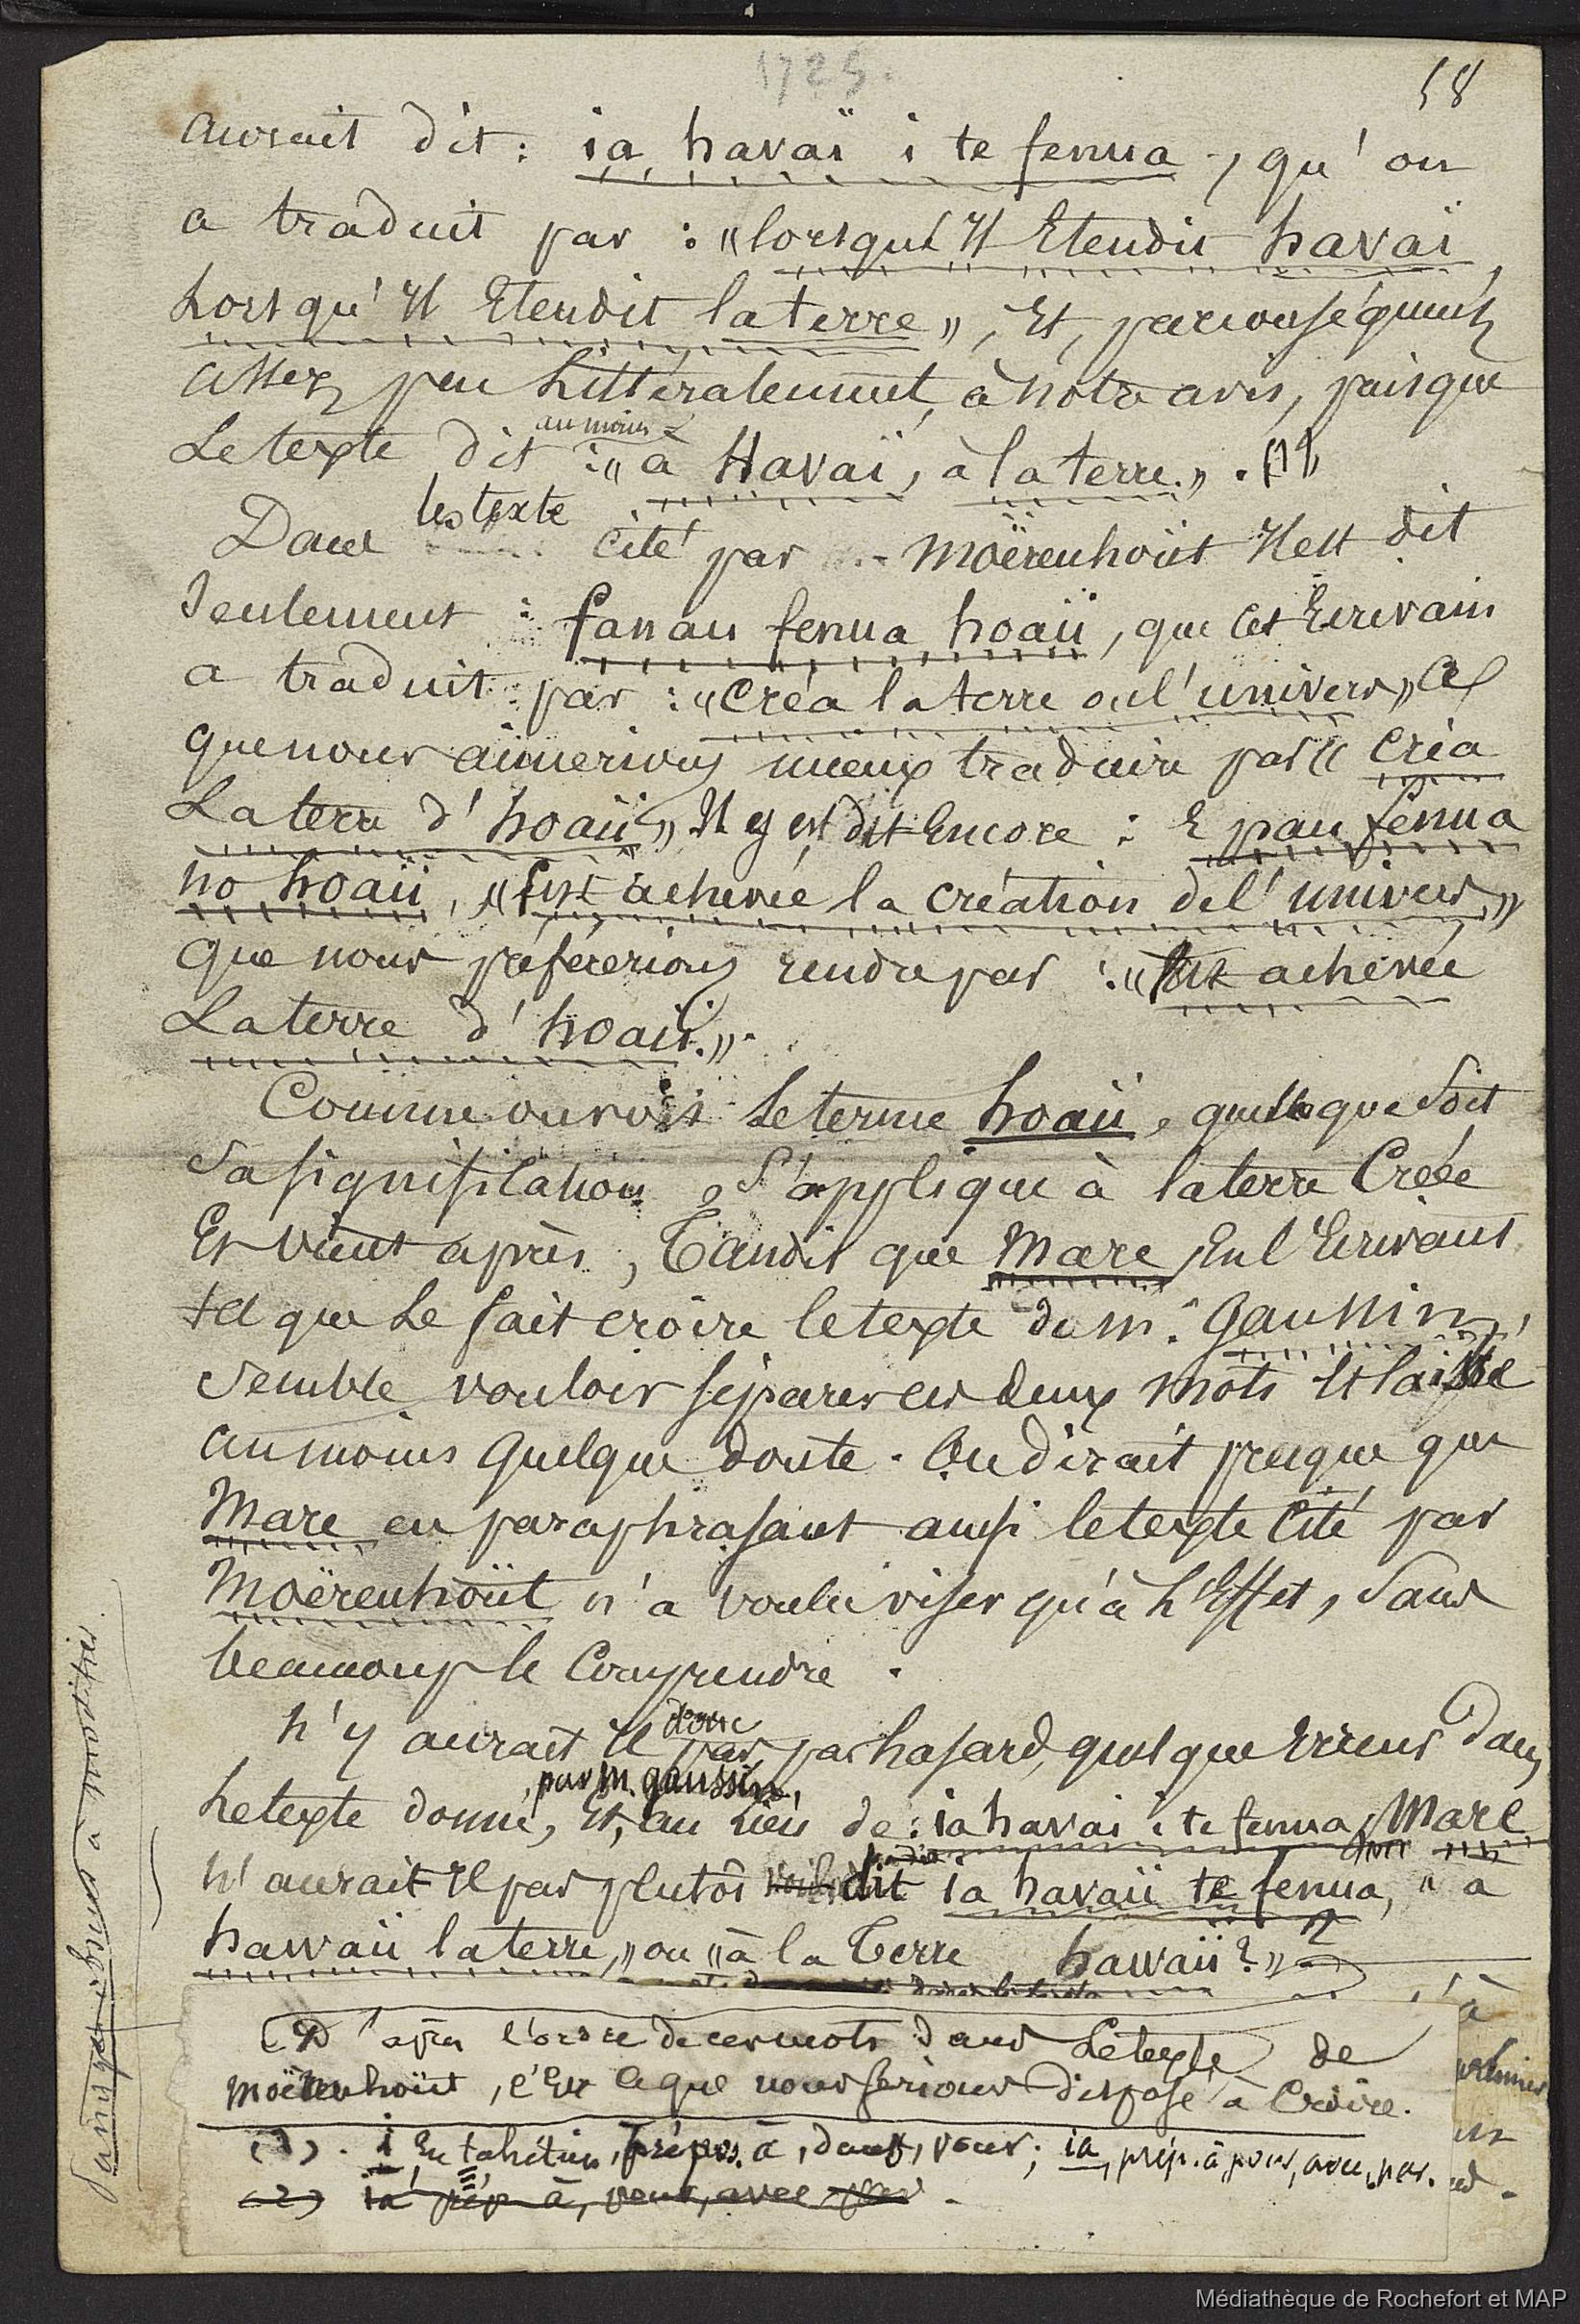 1725.
58
aurait dit: ia havaï i te fenua, qu'on
a traduit par : « lorsqu'Il Etendit havaï,
Lorsqu'Il Etendit la terre », Et, parconséquent,
assez peu Littéralement, à notre avis, puisque
Le texte dit au moins : « à Havaï, à la terre. » . (1)
Dans les texte cité par Moërenhoüt Il est dit
Seulement : fanau fenua hoaïi, que cet Ecrivain
a traduit par : « Créa la terre ou l'univers », Ce
que nous aimerions mieux traduire par « Créa
La terre d'hoaïi » Il y est dit Encore : E pau fenua
no hoaïi, « fut achevée la création de l'univers, »
que nous préférerions rendre par : « fut achevée
La terre d'hoaïi. » .
Comme on voit Le terme hoaïi, quelleque Soit
Sa signification, S'applique à la terre Créée
Et vient après, Tandis que Mare, En l'Ecrivant
tel que Le fait croire le texte de M. Gaussin,
Semble vouloir séparer ces deux mots Et laisse
au moins quelque doute. On dirait presque que
Mare en paraphrasant aussi le texte Cité par
Moërenhoüt n'a voulu viser qu'à L'Effet, Sans
beaucoup le Comprendre .
N'y aurait Il donc pas, par hasard, quelque Erreur dans
Le texte donné, par M. gaussin, Et, au Lieu de : ia havai i te fenua, Mare
N'aurait Il pas plutôt dit ia havaïi te fenua, « à
hawaïi la terre, » ou « à la Terre hawaïi ? » 2
à
D'après l'ordre de ces mots dans Le texte de
Moërenhoüt, c'Est ce que nous serions disposé à Croire.
(1). i En tahitien, prépos. à, dans, pour; ia, prép. à, pour, avec, par.
(2) ia prép à, pour, avec par.